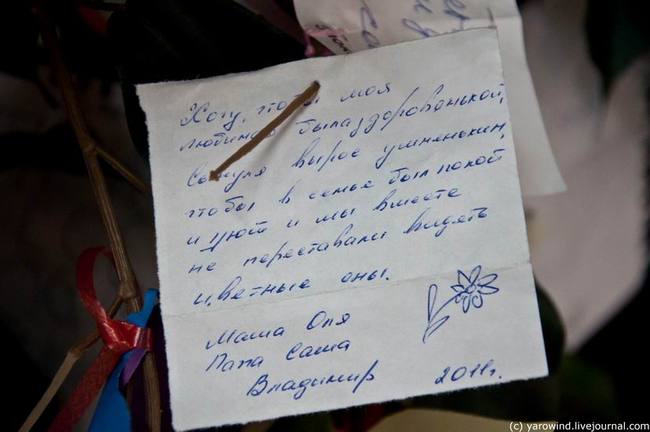 Хочу, чтобы моя
любимая была здоровенькой,
Сынуля вырос умненьким,
чтобы в семье был покой
и уют и мы вместе
не переставали видеть
цветные сны.
Мама Оля
Папа Саша
Владимир 2011г.
(c) yarowind.livejournal.com